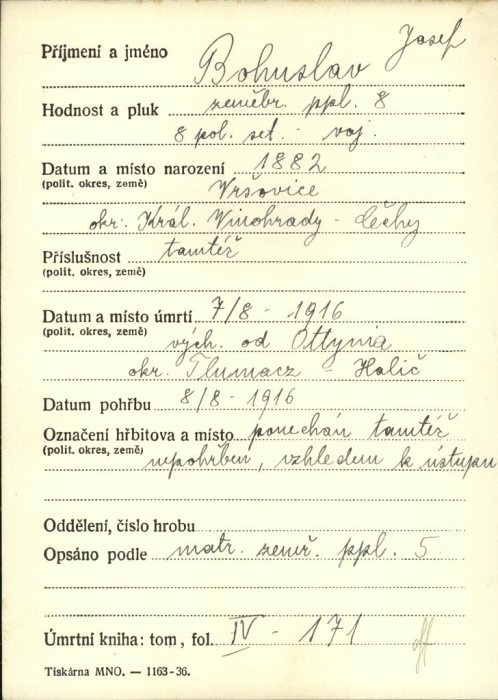 Příjmení a jméno Bohuslav Josef
Hodnost a pluk zeměbr. ppl. 8
8 pol. set. - voj.
Datum a místo narození 1882
(polit. okres, země) Vršovice
okr. Král. Vinohrady - Čechy
Příslušnost tamtéž
(polit. okres, země)
Datum a místo úmrtí 7/8 - 1916
(polit. okres, země) vých. od Ottynia
okr. Tlumacz - Halič
Datum pohřbu 8/8 - 1916
Označení hřbitova a místo ponechán tamtéž
(polit. okres, země) nepohřben, vzhledem k ústupu
Oddělení, číslo hrobu
Opsáno podle matr. zemř. ppl. 5.
Úmrtní kniha: tom, fol. IV - 171
Tiskárna MNO. — 1163-36.